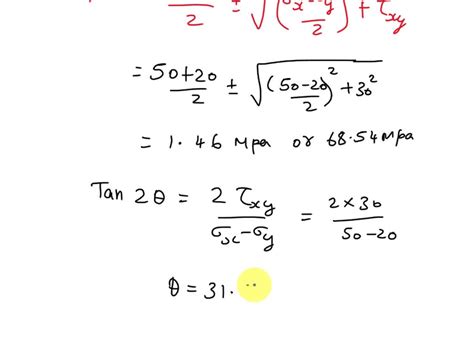 /2 ± √((σx-σy/2)² + τxy
= 50+20/2 ± √((50-20/2)² + 30²
= 1.46 Mpa or 68.54 Mpa
Tan 2θ = 2 τxy/σx-σy = 2×30/50-20
θ = 31.